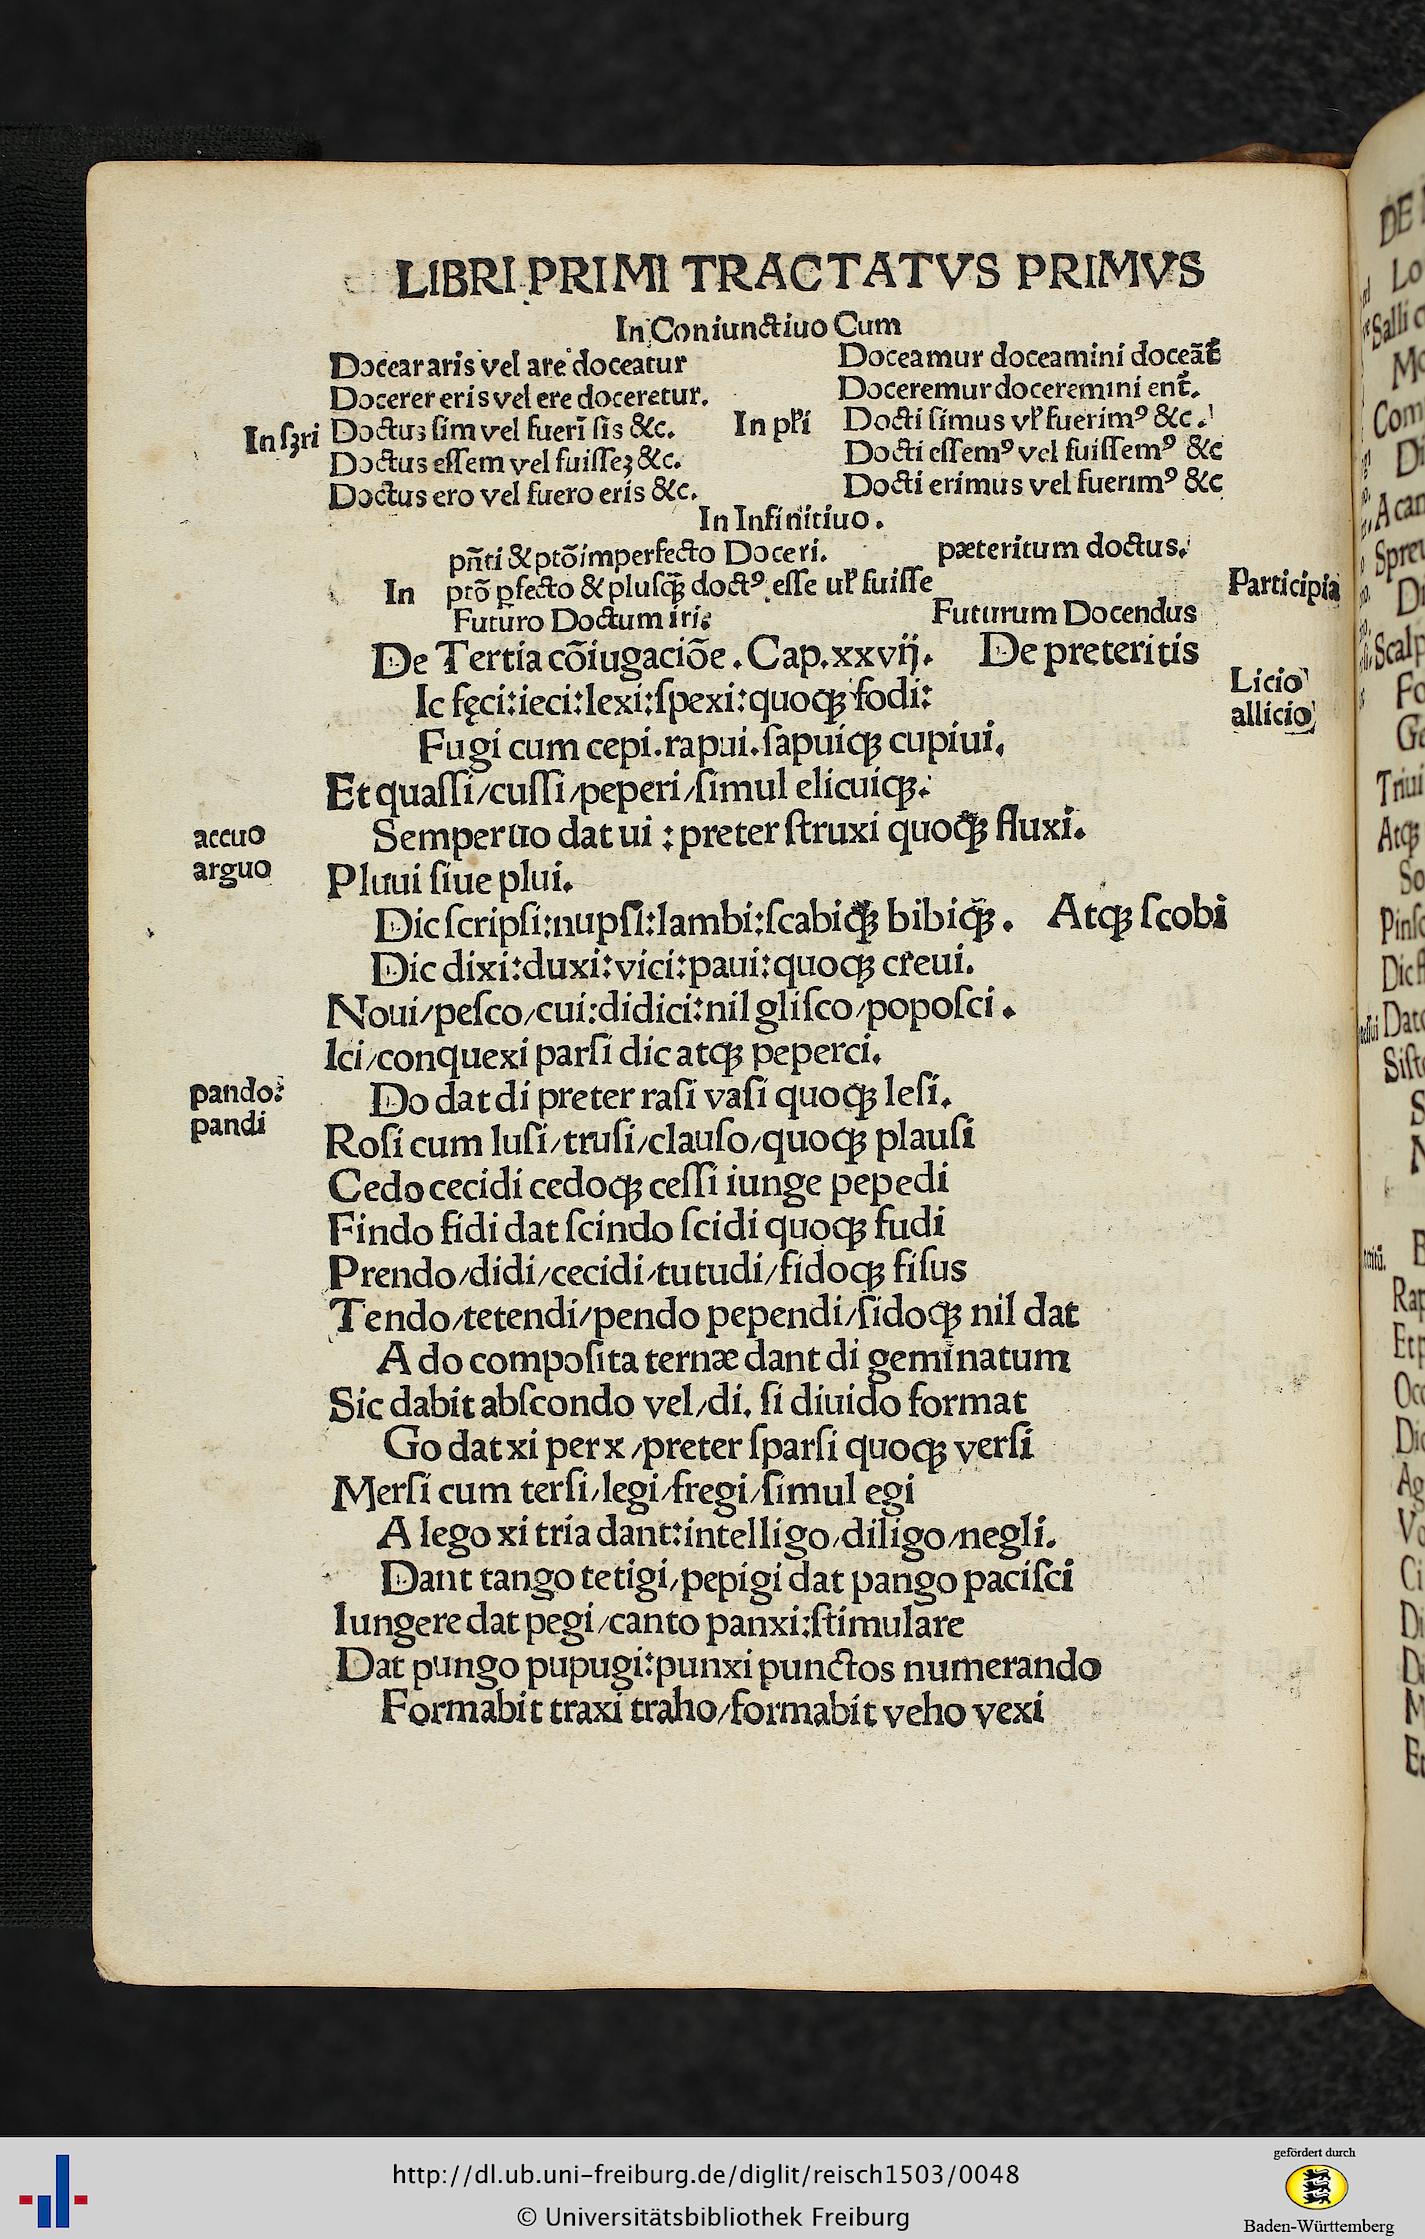 LIBRI PRIMI TRACTATVS PRIMVS
In Coniunctiuo Cum
Docear aris vel are doceatur
Docerer eris vel ere doceretur.
In sꝫri Doctus sim vel fuerī sis &c.
Doctus essem vel fuisseꝫ &c.
Doctus ero vel fuero eris &c.
Doceamur doceamini doceāt̉
Doceremur doceremini ent̉.
In pl̉i Docti simus vl̉ fuerimꝰ &c.
Docti essemꝰ vel fuissemꝰ &c
Docti erimus vel fuerimꝰ &c
In Infinitiuo.
pñti & ptōimperfecto Doceri.
In ptō ꝑfecto & plusqꝫ̃ doctꝰ esse ul̉ fuisse
Futuro Doctum iri.
pæteritum doctus.
Futurum Docendus
Participia
De Tertia cōiugaciōe. Cap. xxvij. De preteritis
Ic fęci: ieci: lexi: spexi: quoqꝫ fodi:
Licio
allicio
Fugi cum cepi. rapui. sapuiqꝫ cupiui.
Et quassi/cussi/peperi/simul elicuiqꝫ.
Semper uo dat ui : preter struxi quoqꝫ fluxi.
accuo
arguo
Pluui siue plui.
Dic scripsi: nupsi: lambi: scabiqꝫ bibiqꝫ̃. Atqꝫ scobi
Dic dixi: duxi: vici: paui: quoqꝫ creui.
Noui/pesco/cui: didici: nil glisco/poposci.
Ici/conquexi parsi dic atqꝫ peperci.
pando:
pandi
Do dat di preter rasi vasi quoqꝫ lesi.
Rosi cum lusi/trusi/clauso/quoqꝫ plausi
Cedo cecidi cedoqꝫ cessi iunge pepedi
Findo fidi dat scindo scidi quoqꝫ fudi
Prendo/didi/cecidi/tutudi/fidoqꝫ fisus
Tendo/tetendi/pendo pependi/sidoqꝫ nil dat
A do composita ternæ dant di geminatum
Sic dabit abscondo vel/di. si diuido format
Go dat xi per x/preter sparsi quoqꝫ versi
Mersi cum tersi/legi/fregi/simul egi
A lego xi tria dant: intelligo/diligo/negli.
Dant tango tetigi/pepigi dat pango pacisci
Iungere dat pegi/canto panxi: stimulare
Dat pungo pupugi: punxi punctos numerando
Formabit traxi traho/formabit veho vexi
http://dl.ub.uni-freiburg.de/diglit/reisch1503/0048
© Universitätsbibliothek Freiburg
gefördert durch
Baden-Württemberg